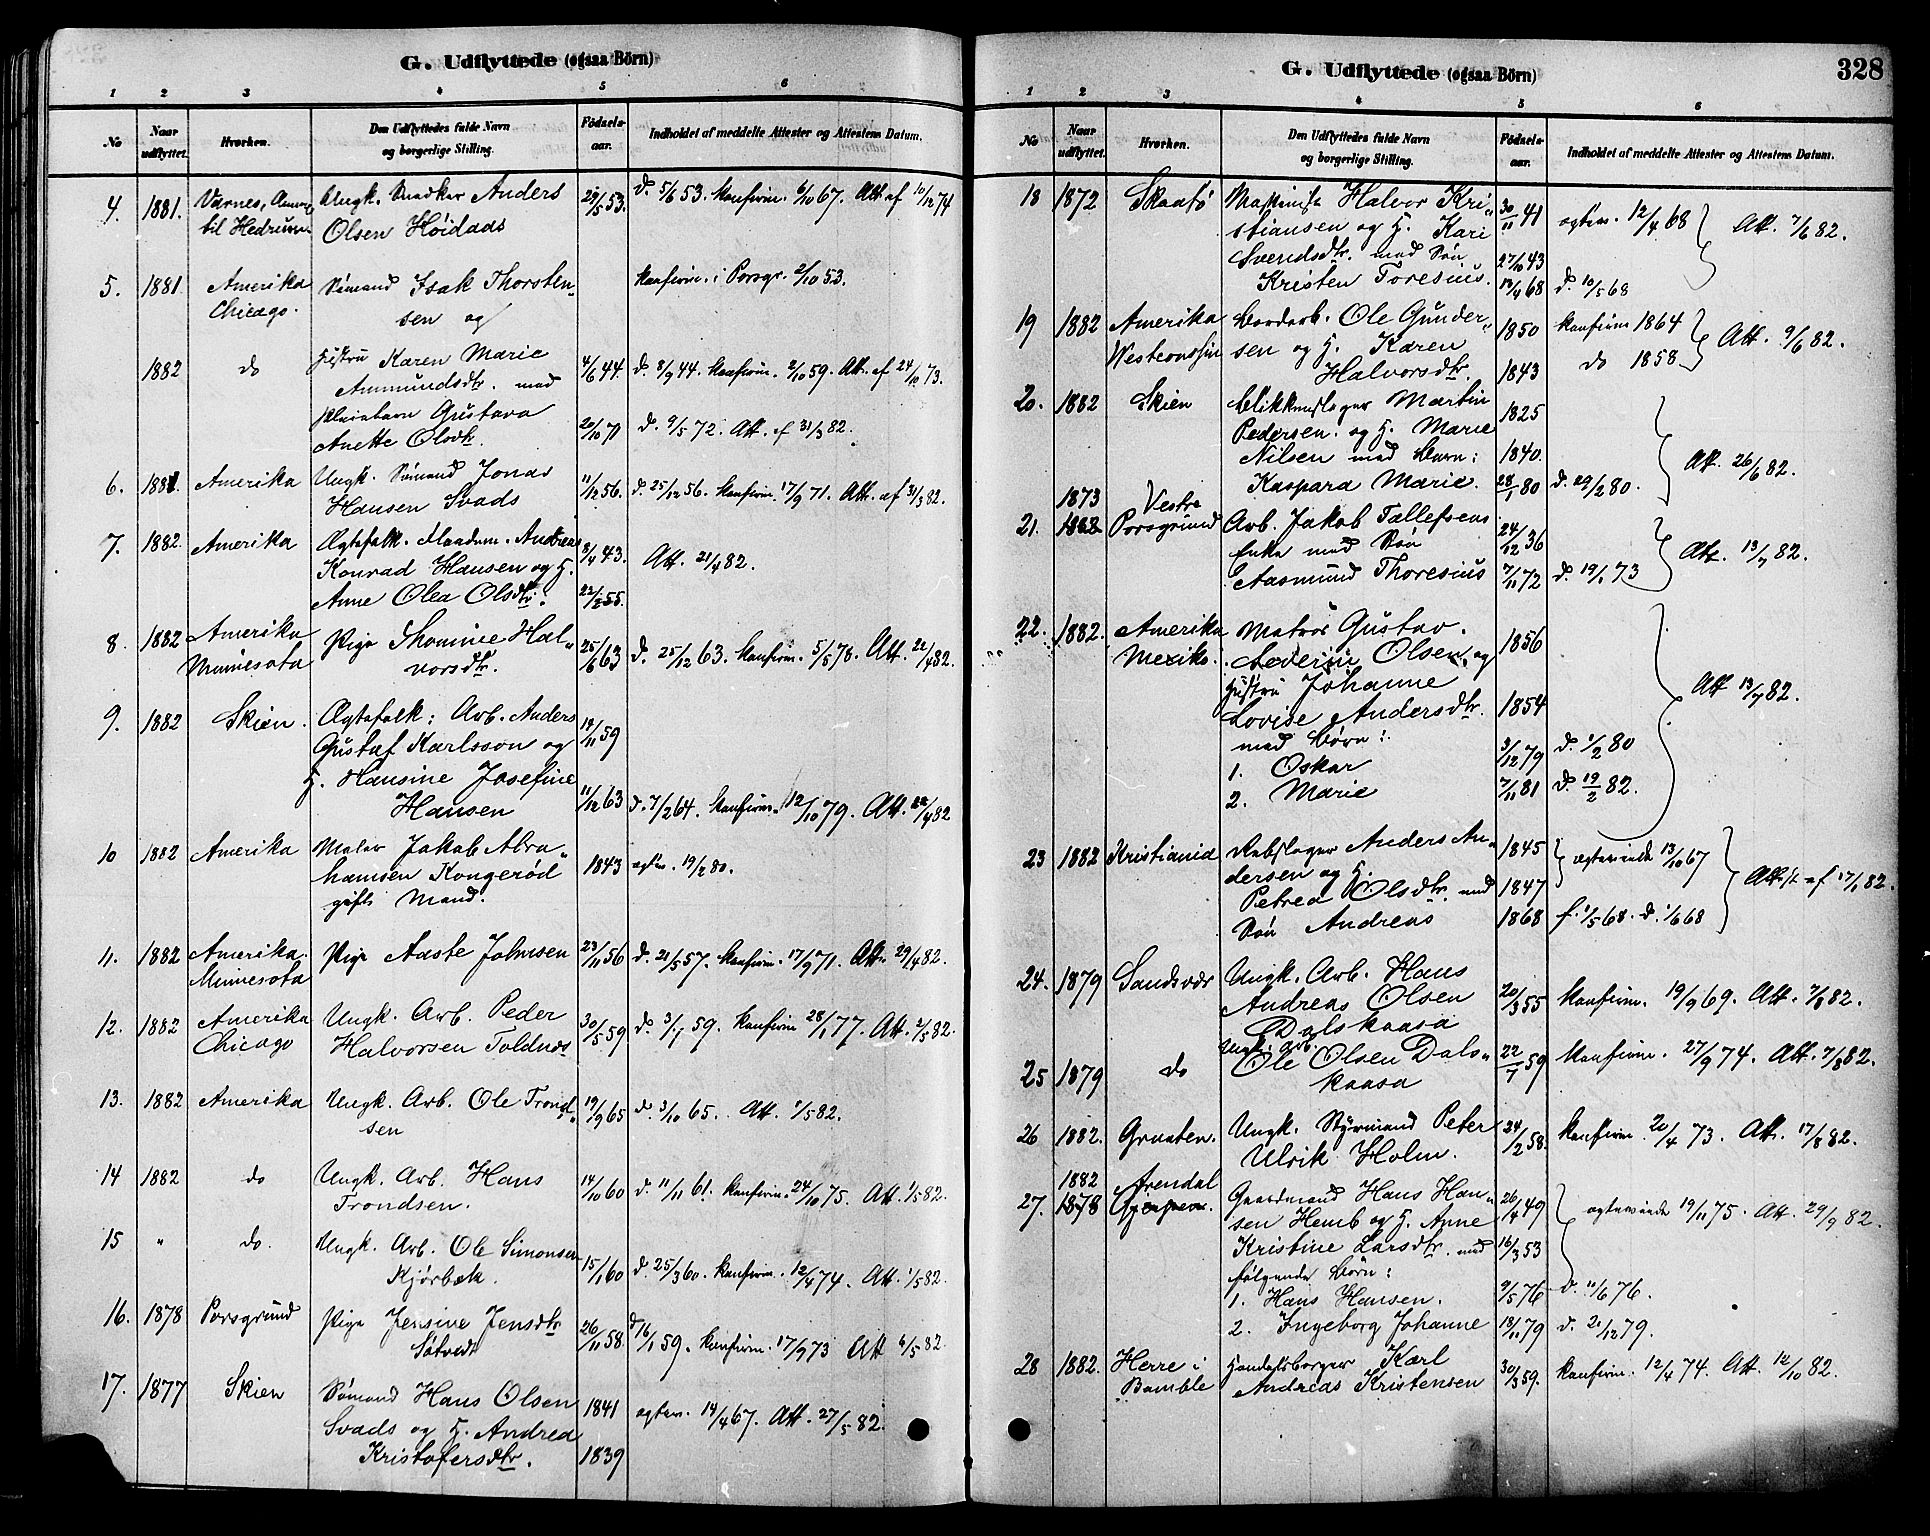 G. Udflyttede (ogsaa Börn)
1 2 3 4 5 6
No Naar udflyttet. Hvorhen. Den Udflyttedes fulde Navn og borgerlige Stilling. Födsels-aar. Indholdet af meddelte Attester og Attestens Datum.
4. 1881. Ungk. Anders 29/5 53. d. 5/6 53. Konfirm. 1/10 67. Att. af 10/12 74
til Hedrum Olsen Høidads
5. 1881 Amerika Sømand Isak Thorsten- Konfirm. i Porsgr. 2/10 53.
Chicago. sen og
1882 do Hustru Karen Marie 4/6 44. d. 8/9 44. Konfirm. 2/10 59. Att. af 24/10 73.
Ammundsdtr. med
Gustava
Anette Olsdtr. 20/10 71 d. 9/5 72. Att. af 31/3 82.
6. 1881 Amerika Ungk. Sømand Jonas 11/12 56. d. 25/12 56. Konfirm. 17/9 71. Att. af 31/3 82.
Hansen Svads
7. 1882. Amerika Ægtefolk. Andreas 8/4 43. Att. 21/4 82.
Konrad Hansen og H.
Anne Olea Olsdtr. 22/2 55.
8. 1882 Amerika Pige Thomine Hal- 25/6 63 d. 25/12 63. Konfirm. 5/5 78. Att. 22/4 82.
Minnesota vorsdtr.
9. 1882 Skien. Ægtefolk: Arb. Anders 13/11 59
Gustaf Karlsson og
H. Hansine Josefine
Hansen 11/12 63 d. 7/2 64. Konfirm. 12/10 79. Att. 22/4 82
10 1882 Amerika Maler Jakob Abra-
hamsen Kongerød 1843 egtev. 19/2 80.
gift Mand.
11. 1882 Amerika. Pige Aaste Johnsen 23/11 56 d. 21/5 57. Konfirm. 17/9 71. Att. 29/4 82.
Minnesota
12. 1882 Amerika Ungk. Arb. Peder 30/5 59 d. 3/7 59. Konfirm 28/1 77. Att. 2/5 82.
Chicago Halvorsen Toldnæs
13. 1882 Amerika Ungk. Arb. Ole Trond- 19/9 65 d. 3/10 65. Att. 1/5 82.
sen
14 1882 do Ungk. Arb. Hans 14/10 60 d. 11/11 61. Konfirm. 24/10 75. Att. 1/5 82.
Trondsen.
15 " do. Ungk. Arb. Ole Simonsen
Kjørbæk. 15/1 60 d. 25/3 60. Konfirm. 12/4 74. Att. 1/5 82.
16. 1878 Porsgrund Pige Jensine Jensdtr 26/11 58. d 16/1 59. Konfirm. 17/9 73 Att 6/5 82.
Søtvedt
17. 1877 Skien Sømand Hans Olsen 1841 egtev. 14/4 67. Att. 27/5 82.
Svads og H. Andrea
Kristofersdtr. 1839
G. Udflyttede (ogsaa Börn) 328
1 2 3 4 5 6
No Naar udflyttet. Hvorhen. Den Udflyttedes fulde Navn og borgerlige Stilling. Födsels-aar. Indholdet af meddelte Attester og Attestens Datum.
18 1872 Skaatø Maskinist Halvor Kri- 30/11 41 egtev. 12/4 68 Att. 7/6 82.
stiansen og H. Kari
Svendsdtr. med Søn 27/10 43
Kristen Toresius. 13/4 68 d. 10/5 68
19 1882 Amerika Ole Gunder- 1850 Konfirm 1864 Att. 9/6 82.
Westconssin sen og H. Karen
Halvorsdtr. 1843 do 1858
20. 1882 Skien Blikkenslager Martin 1825
Pedersen. og H. Marie
Nilsen med Barn: 1840. Att. 26/6 82.
Kaspara Marie. 28/1 80 d. 29/2 80.
1873 Vestre
21. 1882 Porsgrund Arb. Jakob Tallefsens 24/12 36
Enke med Søn Att. 13/7 82.
Aasmund Thoresius 7/11 72 d. 19/1 73
22. 1882. Amerika Matros Gustav 1856
Mexiko. Severin Olsen, og
Hustru Johanne Att 13/7 82.
Lovise Andersdtr. 1854
med Børn:
1. Oskar 3/12 79 d. 1/2 80
2. Marie 7/11 81 d. 19/2 82.
23 1882 Kristiania Rebslager Anders An- 1845 egteviede 13/10 67
dersen og H. Att. af 17/7 82.
Petrea Olsdtr. med 1847
Søn Andreas 1868 f. 1/5 68. d. 1/6 68
24. 1879 Sandsvær Ungk. Arb. Hans
Andreas Olsen 20/3 55 Konfirm. 19/9 69. Att. 7/8 82.
Dalskaasa
25 1879 do Ungk. Arb. Ole Olsen Dals- 22/7 59 Konfirm. 27/9 74. Att. 7/8 82.
kaasa
26 1882. Graaten. Ungk. Styrmand Peter 24/2 58. Konfirm. 20/4 73. Att. 17/8 82.
Ulrik Holm.
1882 Arendal
27. 1878 Gjerpen. Gaardmand Hans Han- 26/4 49 egteviede 19/11 75. Att. 29/9 82.
sen Hemb og H. Anne
Kristine Larsdtr. med 16/3 53
følgende Børn:
1. Hans Hansen. 9/5 76 d. 11/6 76.
2. Ingeborg Johanne 18/11 79 d. 21/12 79.
28 1882. Herre i Handelsborger Karl 30/3 59. Konfirm. 12/4 74. Att. 12/10 82.
Bamble Andreas Kristensen